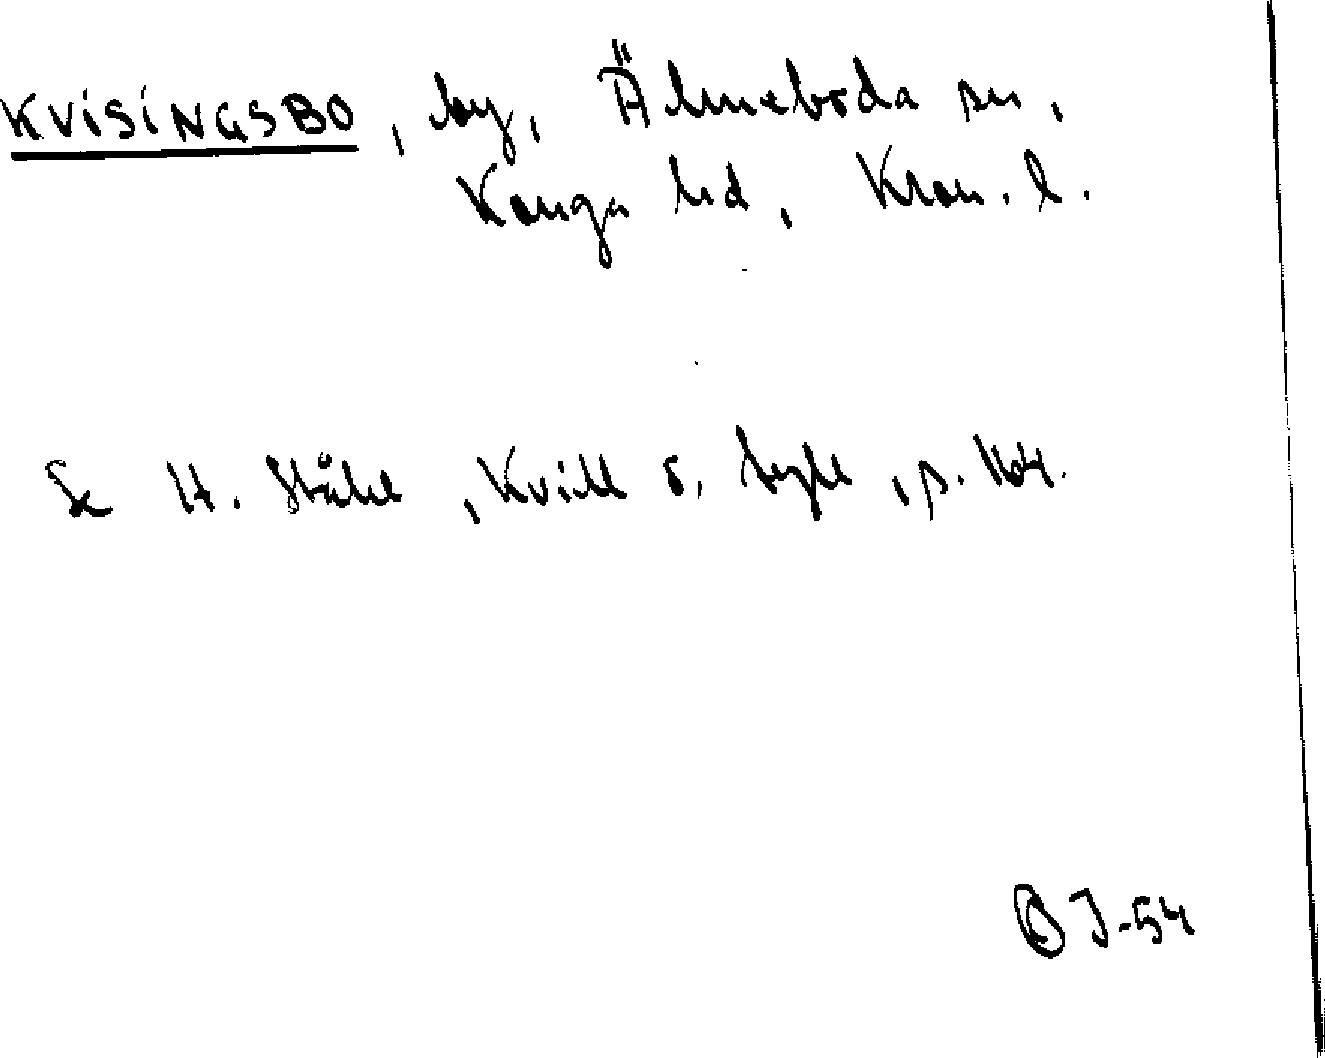 KVISINGSBO, by, Älmeboda sn,
Konga hd, Kron. l.
Se H. Ståhl, Kvill o. tyle, p.
J-54